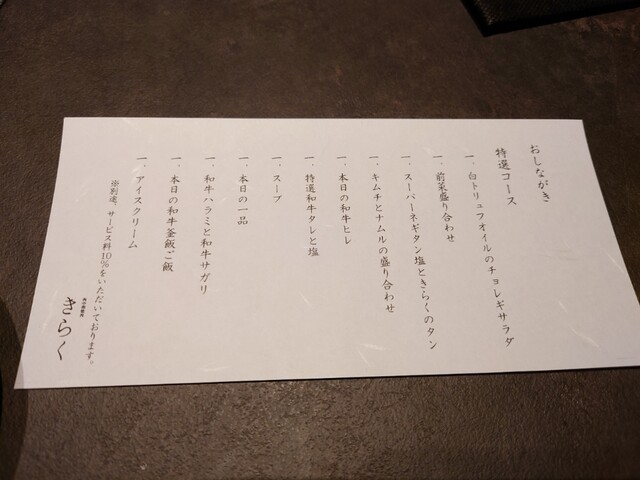 おしながき
特選コース
一．白トリュフオイルのチョレギサラダ
一．前菜盛り合わせ
一．スーパーネギタン塩ときらくのタン
一．キムチとナムルの盛り合わせ
一．本日の和牛ヒレ
一．特選和牛タレと塩
一．スープ
一．本日の一品
一．和牛ハラミと和牛サガリ
一．本日の和牛釜飯ご飯
一．アイスクリーム
※別途、サービス料10%をいただいております。
きらく